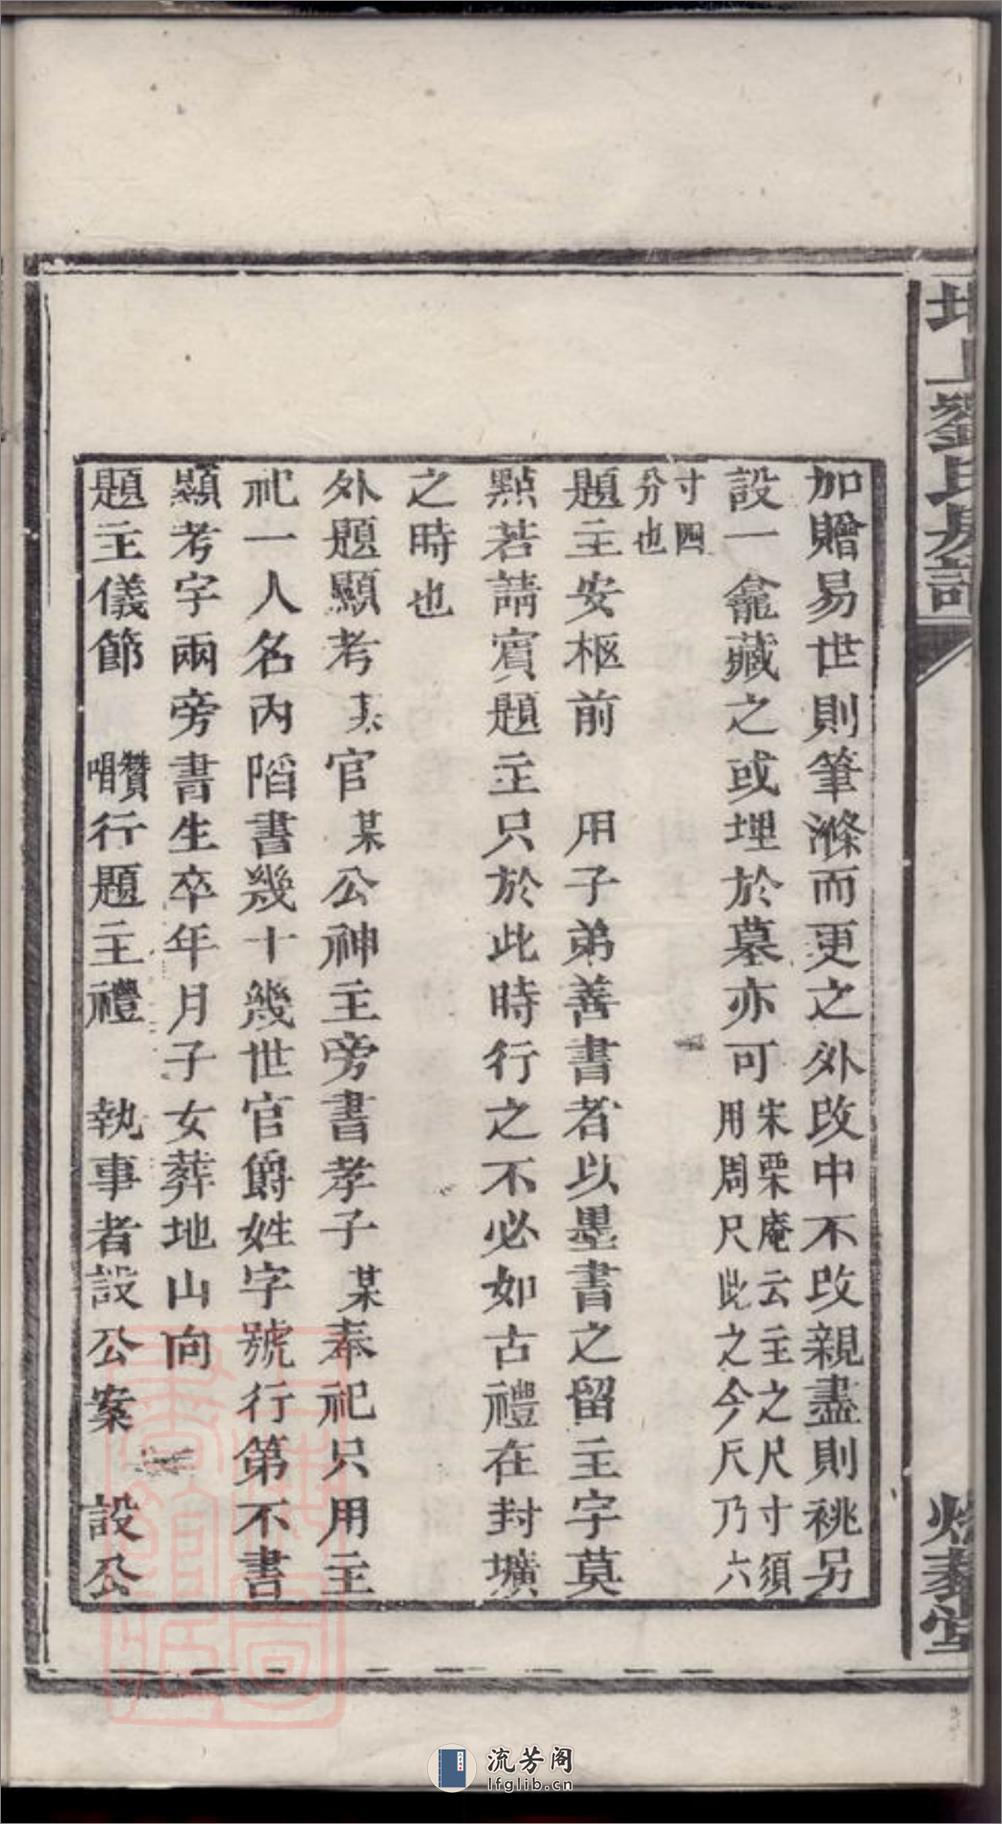 加贈易世則筆滌而更之外改中不改親盡則祧另
設一龕藏之或埋於墓亦可宋栗庵云主之尺寸須用周尺此之今尺乃六
寸四分也
題主安柩前　用子弟善書者以墨書之留主字莫
點若請賓題主只於此時行之不必如古禮在封壙
之時也
外題顯考某官某公神主旁書孝子某奉祀只用主
祀一人名內陷書幾十幾世官爵姓字號行第不書
顯考字兩旁書生卒年月子女葬地山向
題主儀節　贊唱行題主禮　執事者設公案　設公
流芳阁
lfglib.cn